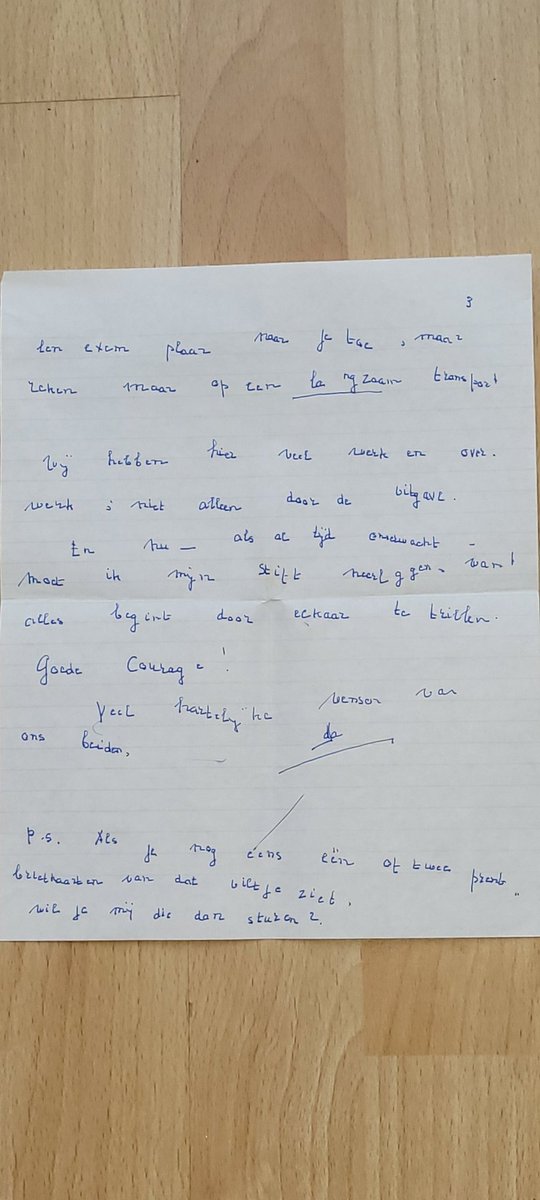 3
een exem plaar naar je toe, maar
reken maar op een la ngzaam transport
Wij hebben hier veel werk en over.
werk ; niet alleen door de uitgave.
En nu — als al tijd onverwacht -
moet ik mijn stift neerl ggen. want
alles begint door elkaar te trillen.
Goede Courag e !
Veel hartelij ke wensen van
ons beiden,
P.S. Als je nog eens eën of twee prent
briefkaarten van dat viltje ziet,
wil je mij die dan sturen ?.